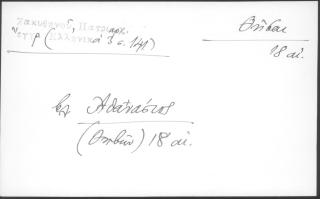 Ζακυθηνός, Πατριαρχ.
ἔγγρ (Ἑλληνικά 3 σ. 141)
Θῆβαι
18 αἰ.
Ἀθανάσιος
(Θηβῶν) 18 αἰ.